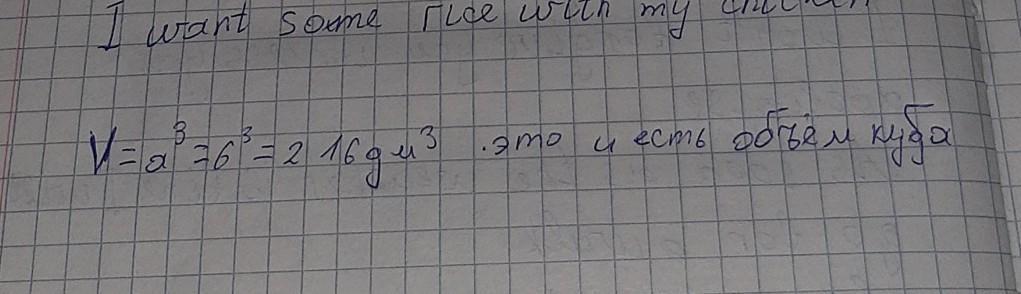 I want some rice with my chicken
V = a³ = 6³ = 216 дм³ . это и есть объём куба